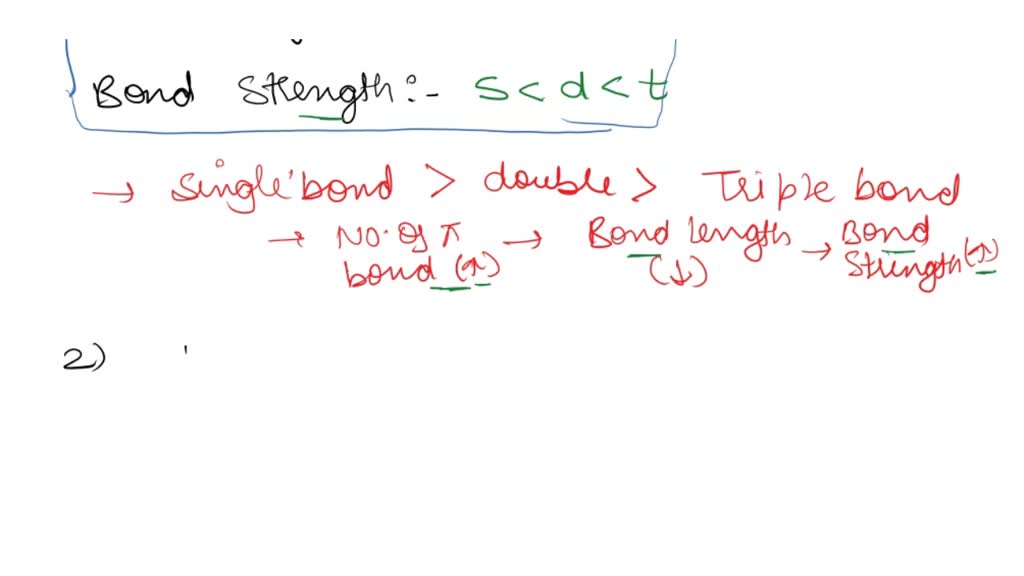 Bond Strength:- s < d < t
→ single bond > double > Triple bond
→ No. of π bond (↑) → Bond length (↓) → Bond Strength (↑)
2)